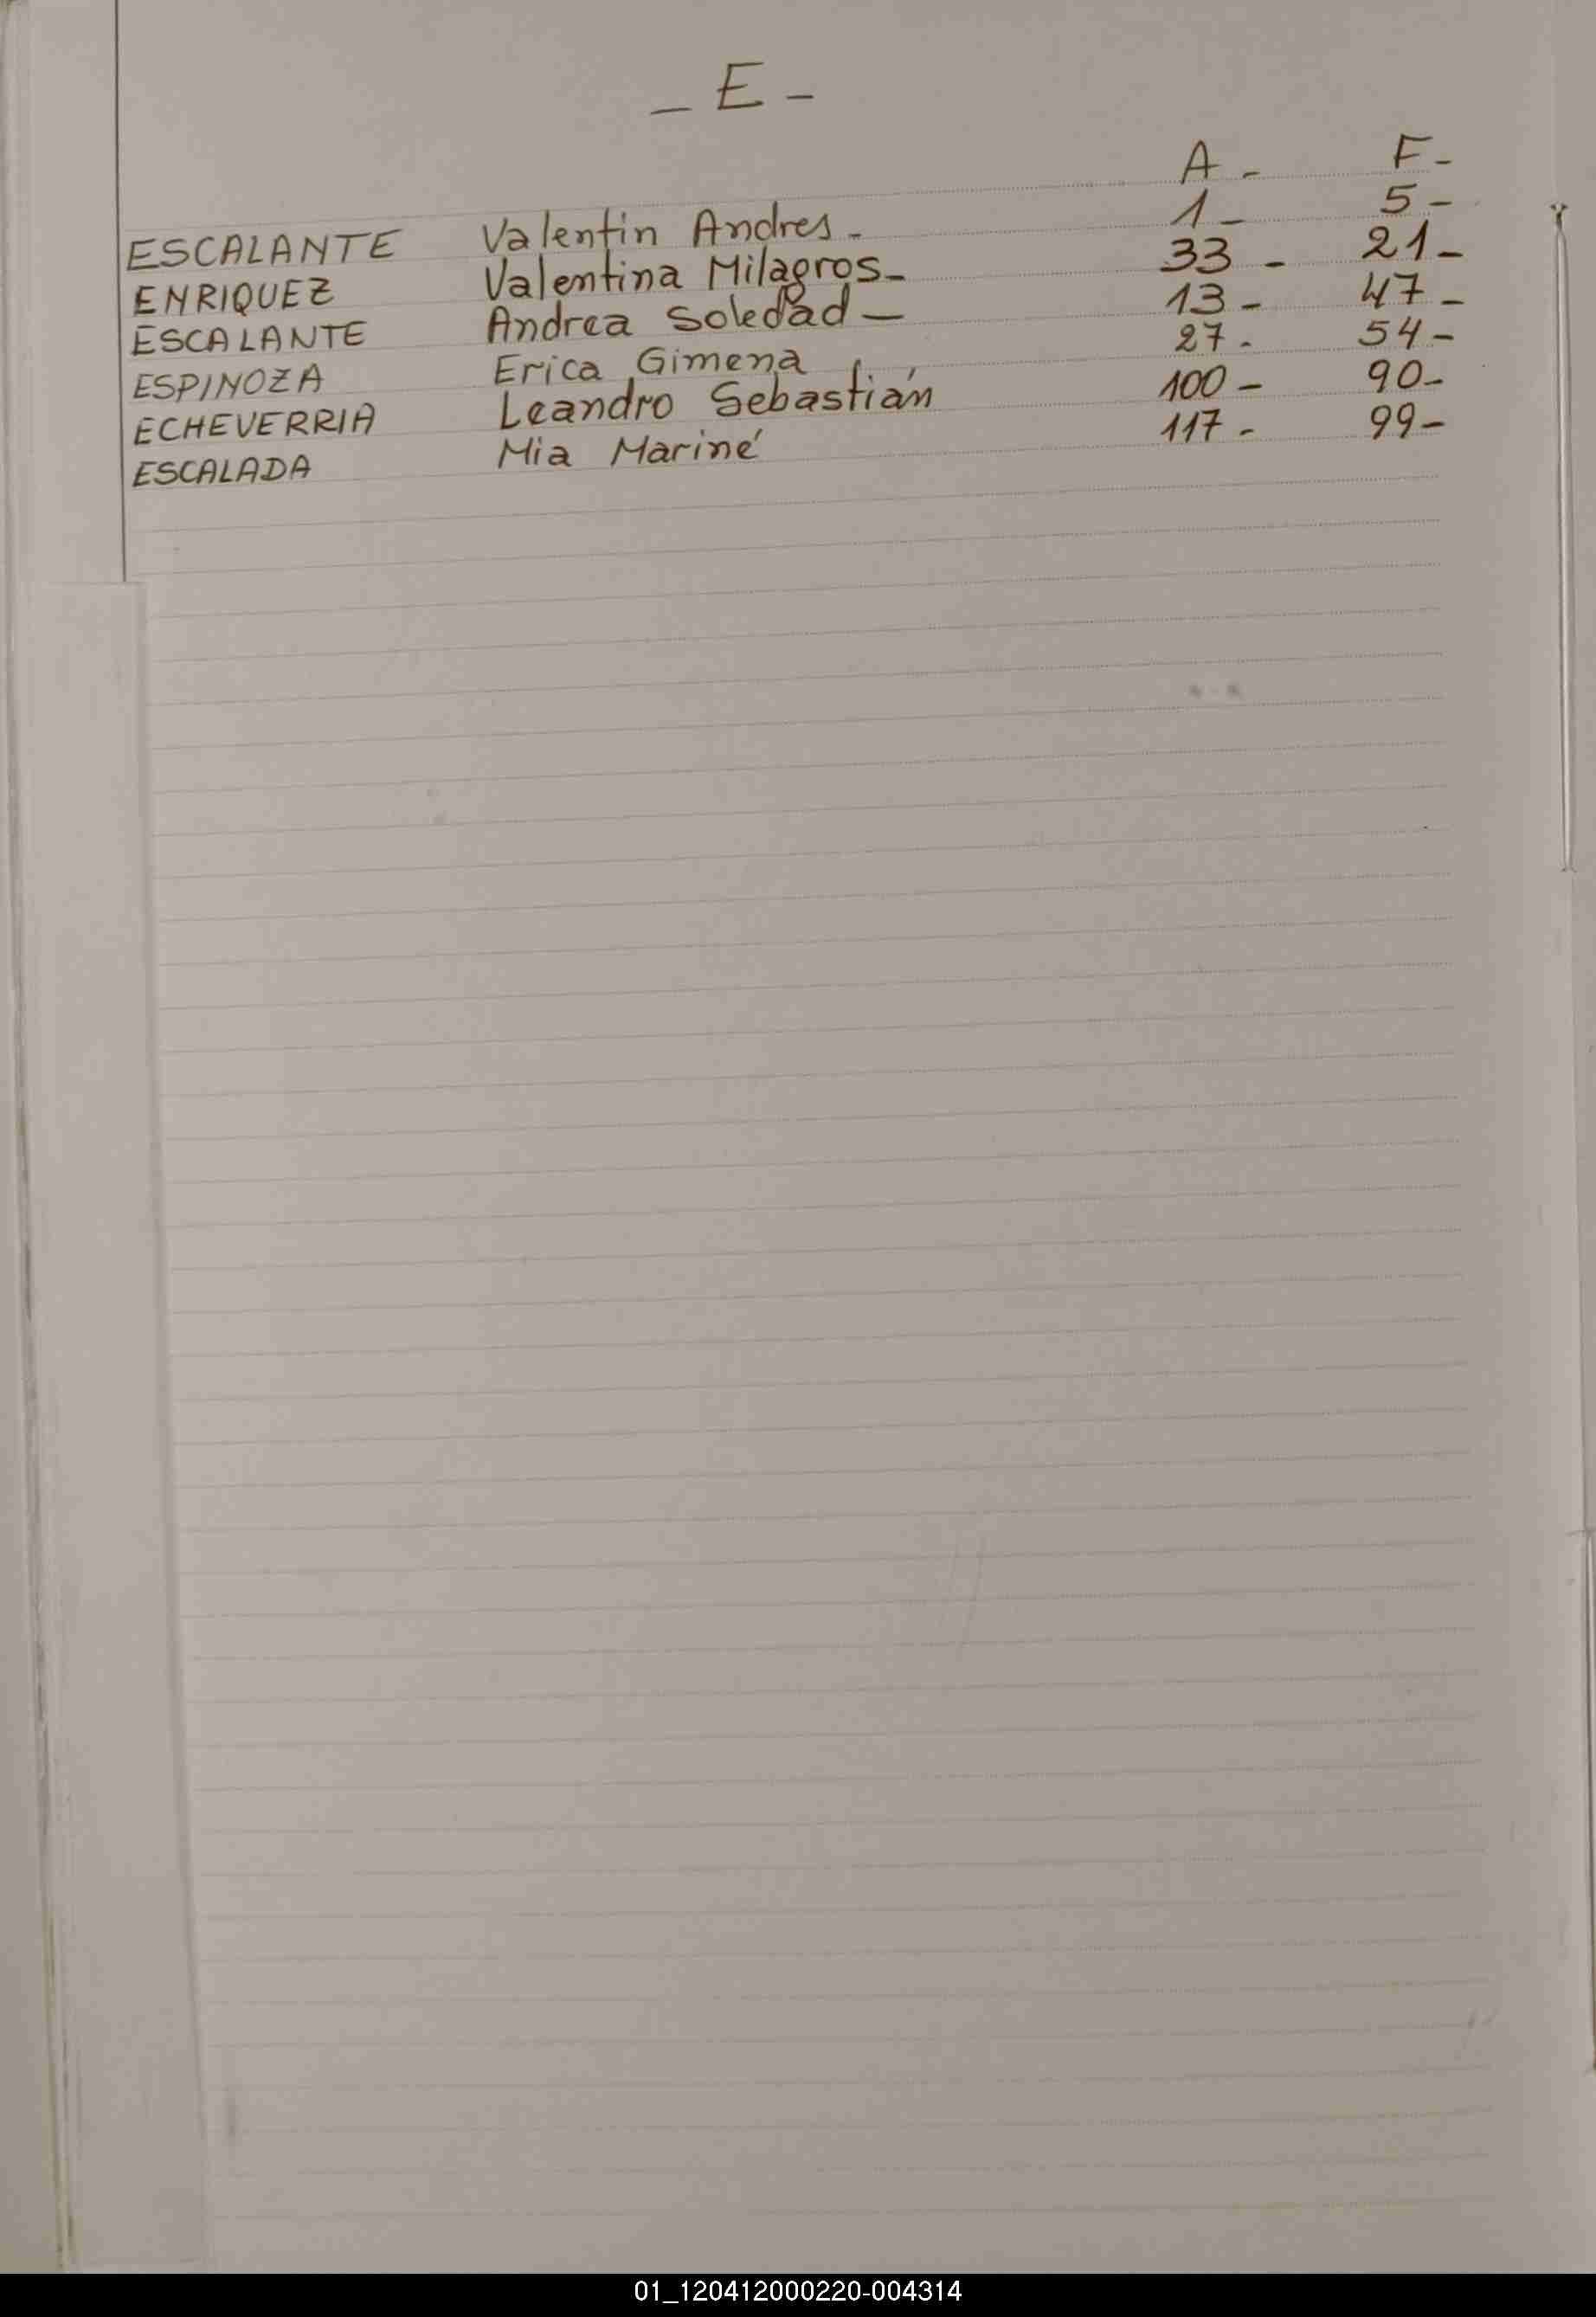 _ E -
A - F-
ESCALANTE Valentin Andres - 1 - 5 -
ENRIQUEZ Valentina Milagros - 33 - 21 -
ESCALANTE Andrea Soledad - 13 - 47 -
ESPINOZA Erica Gimena 27 - 54 -
ECHEVERRIA Leandro Sebastián 100 - 90 -
ESCALADA Mia Mariné 117 - 99 -
01_120412000220-004314